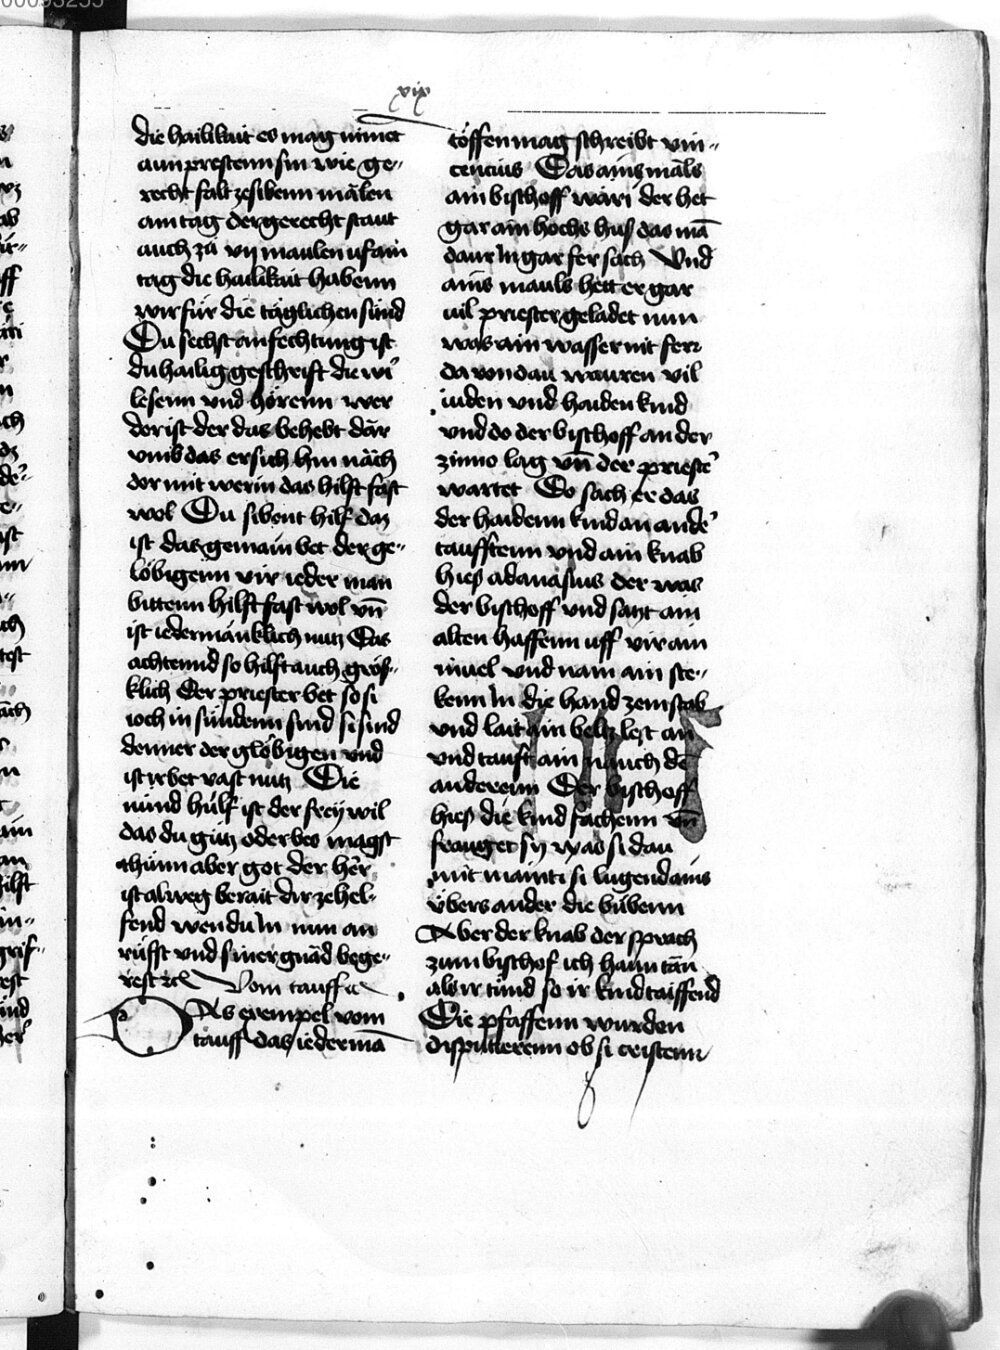 xix
die hailikait es mag nimet
aun prestenn sin wie ge-
recht falt ze sibenn mālen
am tag der gerecht staut
auch zů vij maulen uf ain
tag die hailikait habenn
wir für die täglichen sünd
Du sechst anfechtung ist
du hailig geschrift die wi᷑
lesenn vnd hörenn wer
der ist der das behebt där
vmb das er sich hin näch
dor mit werin das hilft fast
wol Du sibent hilf daz
ist das gemain bet der ge-
löbigenn vir ieder man
bittenn hilft fast wol vn̄
ist iedermānklich nutz Das
achtennd so hilft auch gröſ-
klich Der priester bet so si
ioch in sündenn sind si sind
denner der glöbigen vnd
ist ir bet vast nutz Die
nünd hülf ist der frey wil
das du gütz oder bes magst
thünn aber got der her
ist alweg berait dir ze hel-
fend wen du In nun an
rüfft vnd siner gnäd bege-
rest ꝛc Vom tauff ꝛc
Das exempel vom
tauff das iedermā
töffen mag schreibt vin-
cencius Das ains māls
ain bischoff wari der het
gar ain hochs hus das mā
daur In gar fer sach Vnd
ains mauls hett er gar
uil priester geladet nun
was ain wasser nit ferr
da von dau wauren vil
iuden vnd haiden kind
vnd do der bischoff an der
zinno lag vn̄ der prieste᷑
wartet Do sach er das
der haidenn kind an ande᷑
taufftenn vnd ain knab
hies adanasius der was
der bischoff vnd satzt ain
alten haffenn uff vir ain
niuel vnd nam ain ste-
kenn In die hand zem stab
vnd lait ain beltz letz an
vnd tauft ain nauch dē
anderenn Der bischoff
hies die kind fachenn vn̄
frauget sy was si dau
mit mainti si lugend ains
übers ander die bübenn
Aber der knab der sprach
zum bischof ich haun tān
als ir tünd so ir kind taiffend
Die pfaffenn wurden
disputierenn ob si cristenn